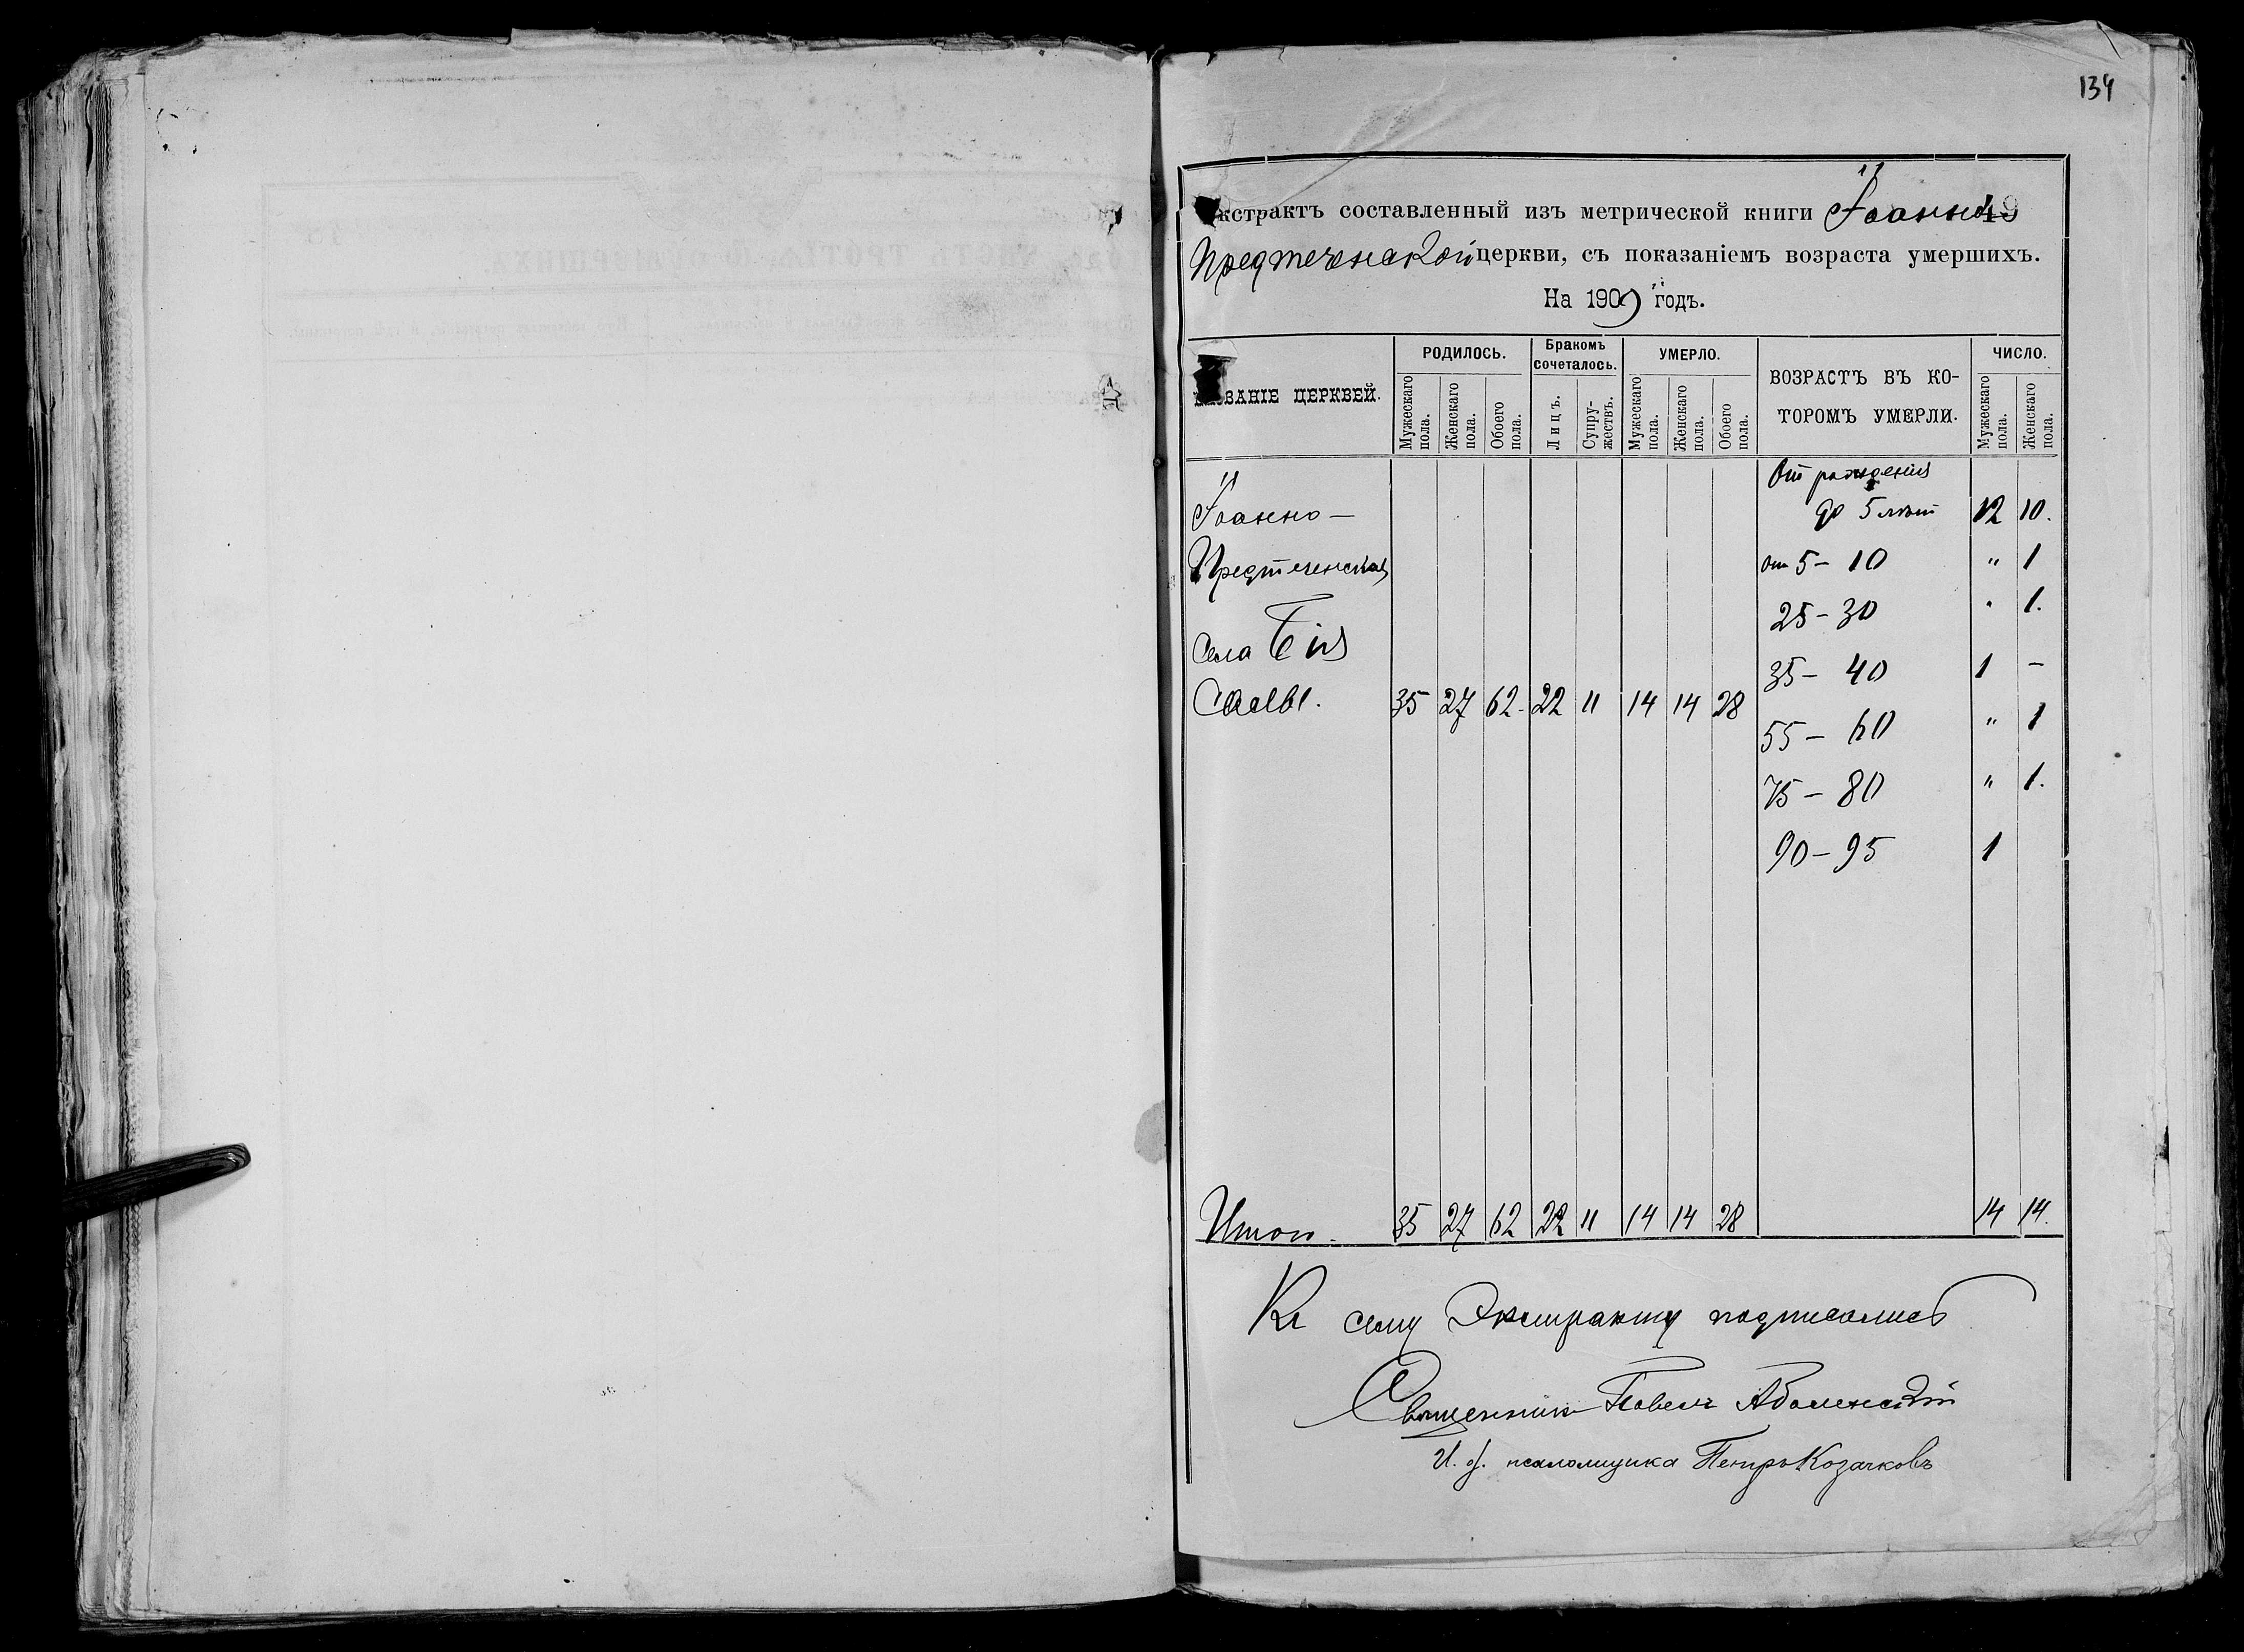 134
49
Экстрактъ составленный изъ метрической книги Іоанно
Предтеченской церкви, съ показаніемъ возраста умершихъ.
На 1909 годъ.
НАЗВАНІЕ ЦЕРКВЕЙ.
РОДИЛОСЬ.
Мужескаго пола.
Женскаго пола.
Обоего пола.
Бракомъ сочеталось.
Лицъ.
Супружествъ.
УМЕРЛО.
Мужескаго пола.
Женскаго пола.
Обоего пола.
ВОЗРАСТЪ ВЪ КО-
ТОРОМЪ УМЕРЛИ.
ЧИСЛО.
Мужескаго пола.
Женскаго пола.
Іоанно-
Предтеченская
села
35 27 62. 22 11 14 14 28
От рожденія
до 5 лѣт 12 10.
от 5 - 10 " 1
25 - 30 " 1.
35 - 40 1 -
55 - 60 " 1
75 - 80 " 1.
90 - 95 1
Итого. 35 27 62 22 11 14 14 28 14 14.
Къ сему Экстракту подписались
Священникъ Павелъ
И. д. псаломщика Петръ Козачковъ